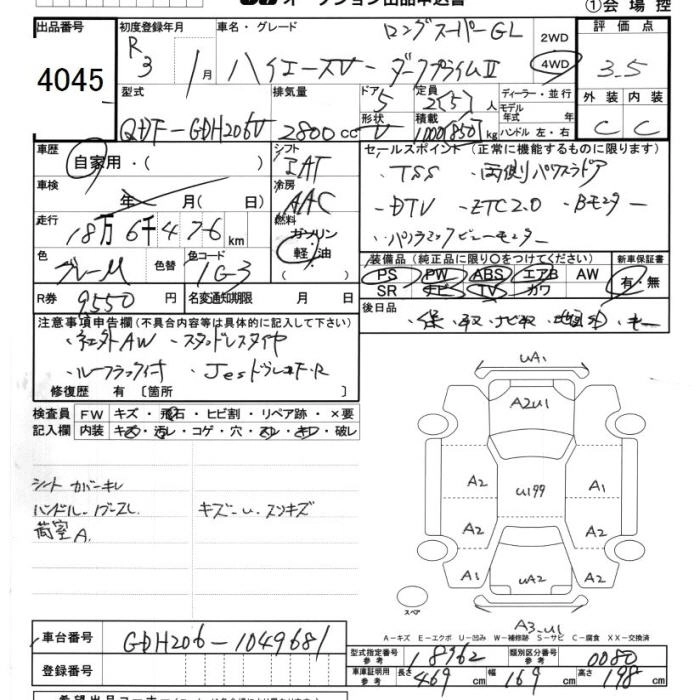 オークション出品申込書 ①会場控
出品番号 初度登録年月 車名・グレード ロングスーパーGL 2WD 評価点
4045 R3年 1月 ハイエースV ダークプライムⅡ 4WD 3.5
型式 排気量 ドア 5 定員 2(5)人 ディーラー・並行 外装 内装
QDF-GDH206V 2800cc 形状 V 積載 1000(850)kg モデル年式 年 ハンドル 左・右 C C
車歴 自家用・( ) シフト IAT セールスポイント (正常に機能するものに限ります)
車検 年 月( 日) 冷房 AAC ・TSS ・両側パワスラドア
走行 18万6千476km 燃料 ガソリン 軽油 ( ) ・DTV ・ETC2.0 ・Bモニター
・パノラミックビューモニター
色 グレーM 色替 色コード 1G3 装備品 (純正品に限り○をつけてください) 新車保証書
PS PW ABS エアB AW 有・無
SR ナビ TV カワ
R券 9550円 名変通知期限 月 日 後日品
注意事項申告欄 (不具合内容等は具体的に記入して下さい) ・保・取・ナビ取
・社外AW ・スタッドレスタイヤ
・ルーフラック付 ・JesドラレコF.R
修復歴 有 〔箇所 〕
検査員記入欄 FW キズ・飛石・ヒビ割・リペア跡・×要
内装 キズ・汚レ・コゲ・穴・スレ・キレ・破レ
シートカバーキレ
ハンドル・ノブスレ キズ・U・スリキズ
荷室A
UA1
A2U1
A2 U199 A1
A2 A2
A1 UA2 A2
スペア
A3-U1
A-キズ E-エクボ U-凹み W-補修跡 S-サビ C-腐食 XX-交換済
車台番号 GDH206-1049681 型式指定番号 参考 18962 類別区分番号 参考 0080
登録番号 車庫証明用 参考 長さ 469cm 幅 169cm 高さ 198cm